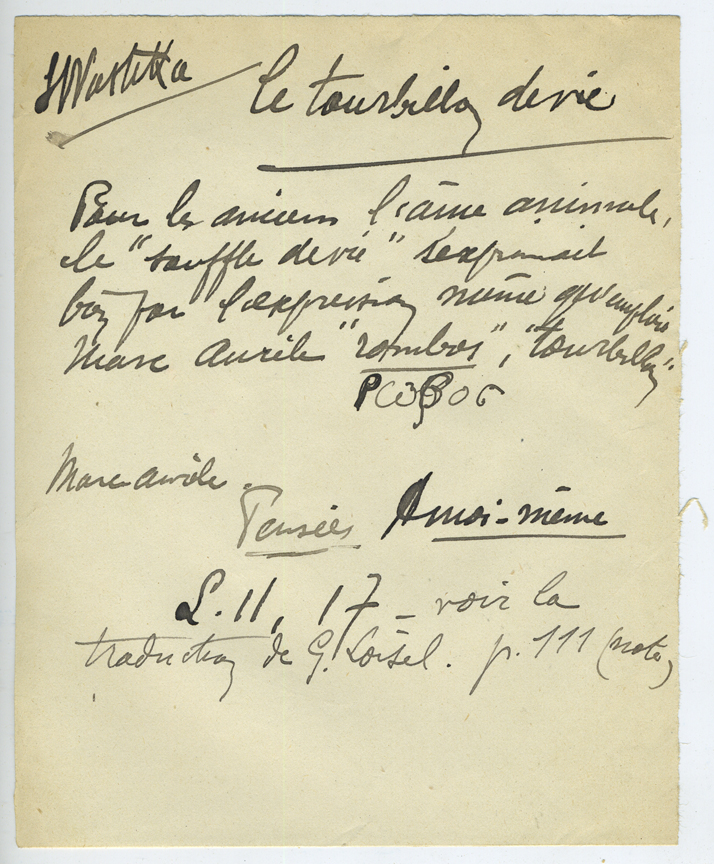 Swastika
Le tourbillon de vie
Pour les anciens l'âme animale,
le "souffle de vie" s'exprimait
bien par l'expression même qu'emploie
Marc Aurèle "rombos", "tourbillon"
ρωβος
Marc Aurèle.
Pensées A moi-même
L. II, 17 - voir la
traduction de G. Loisel. p. 111 (note)